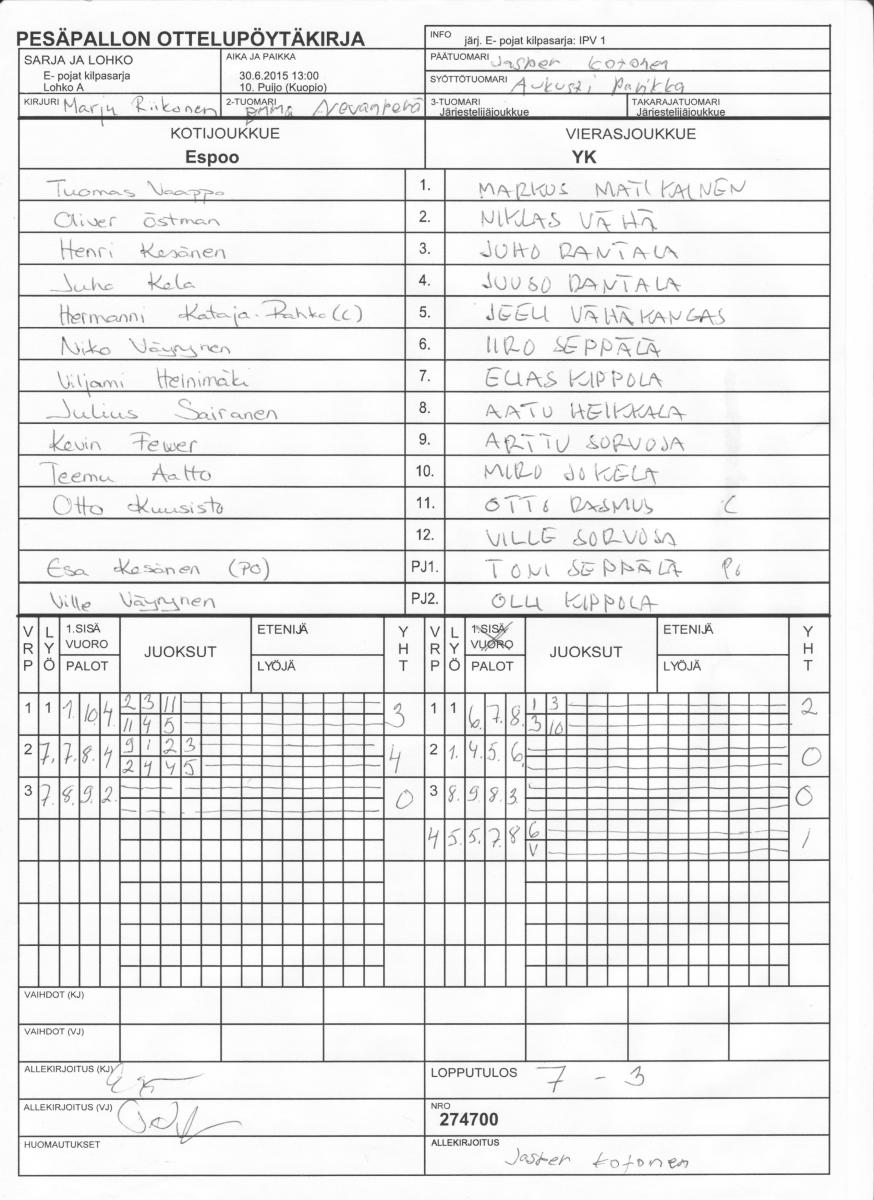 PESÄPALLON OTTELUPÖYTÄKIRJA
INFO järj. E- pojat kilpasarja: IPV 1
SARJA JA LOHKO
E- pojat kilpasarja
Lohko A
AIKA JA PAIKKA
30.6.2015 13:00
10. Puijo (Kuopio)
PÄÄTUOMARI Jasper Kotonen
SYÖTTÖTUOMARI Aukusti Parikka
KIRJURI Marju Riikonen
2-TUOMARI
3-TUOMARI
Järjestelijäjoukkue
TAKARAJATUOMARI
Järjestelijäjoukkue
KOTIJOUKKUE
Espoo
VIERASJOUKKUE
YK
Tuomas Vaappo 1. MARKUS MATIKAINEN
Oliver Östman 2. NIKLAS VÄHÄ
Henri Kesänen 3. JUHO RANTALA
Juho Kela 4. JUUSO RANTALA
Hermanni Kataja-Rahko (C) 5. JEELI VÄHÄKANGAS
Niko Väyrynen 6. IIRO SEPPÄLÄ
Viljami Heinimäki 7. ELIAS KIPPOLA
Julius Sairanen 8. AATU HEIKKALA
Kevin Fewer 9. ARTTU SORVOJA
Teemu Aatto 10. MIRO JOKELA
Otto Kuusisto 11. OTTO RASMUS C
12. VILLE SORVOJA
Esa Kesänen (PO) PJ1. TONI SEPPÄLÄ PJ
Ville Väyrynen PJ2. OLLI KIPPOLA
VRP LYÖ 1.SISÄ VUORO PALOT JUOKSUT ETENIJÄ LYÖJÄ YHT
VRP LYÖ 1.SISÄ VUORO PALOT JUOKSUT ETENIJÄ LYÖJÄ YHT
1 1 1. 10. 4. 2 3 11 3
11 4 5
1 1 6. 7. 8. 1 3 2
3 10
2 7. 7. 8. 4 9 1 2 3 4
2 4 4 5
2 1. 4. 5. 6. 0
3 7. 8. 9. 2. 0
3 8. 9. 8. 3. 0
4 5. 5. 7. 8 6 1
V
VAIHDOT (KJ)
VAIHDOT (VJ)
ALLEKIRJOITUS (KJ)
LOPPUTULOS 7 - 3
ALLEKIRJOITUS (VJ)
NRO
274700
HUOMAUTUKSET
ALLEKIRJOITUS
Jasper Kotonen